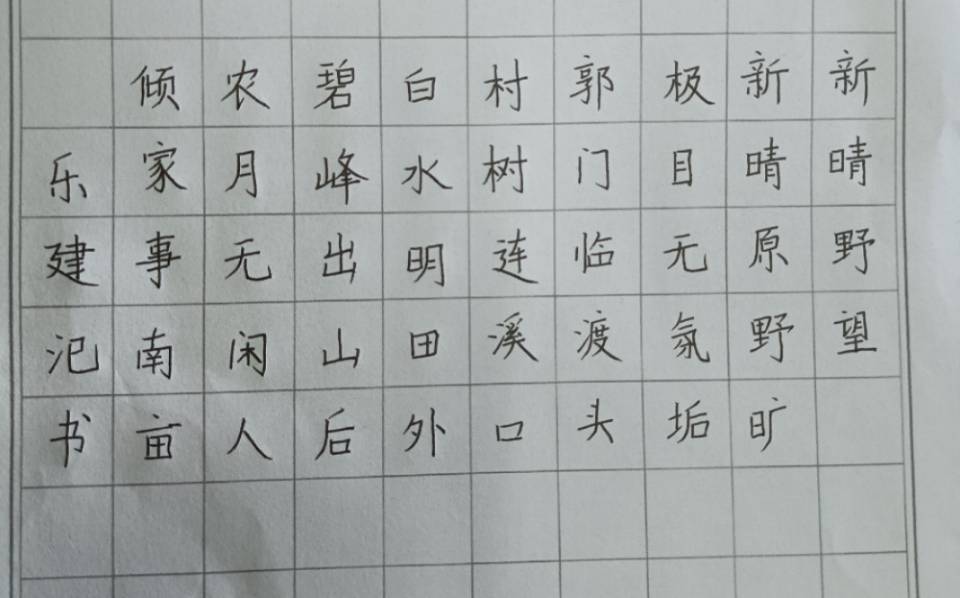 新晴野望
新晴原野旷
极目无氛垢
郭门临渡头
村树连溪口
白水明田外
碧峰出山后
农月无闲人
倾家事南亩
乐建汜书